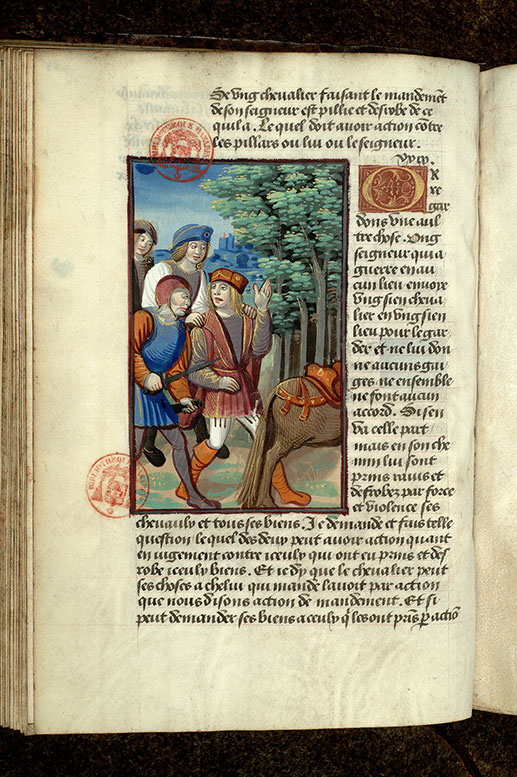 Se ung chevalier faisant le mandemēt
de son seigneur est pillie et desrobe de ce
quil a. Le quel doit avoir action cōtre
les pillars ou lui ou le seigneur.
Or re
gar
dons une aul
tre chose. Ong
seigneur qui a
guerre en au
cun lieu envoye
ung sien cheva
lier en ung sien
lieu pour le gar
der et ne lui don
ne aucuns gai
ges ne ensemble
ne font aucun
accord. Si sen
va celle part
mais en son che
min lui sont
prins ravis et
desrobez par force
et violence ses
chevaulx et tous ses biens. Je demande et fais telle
question le quel des deux peut avoir action quant
en iugement contre iceulx qui ont eu prins et des
robe iceulx biens. Et ie dy que le chevalier peut
ses choses a chelui qui mande lavoit par action
que nous disons action de mandement. Et si
peut demander ses biens a ceulx q̄ les ont prīs p̱ actiō